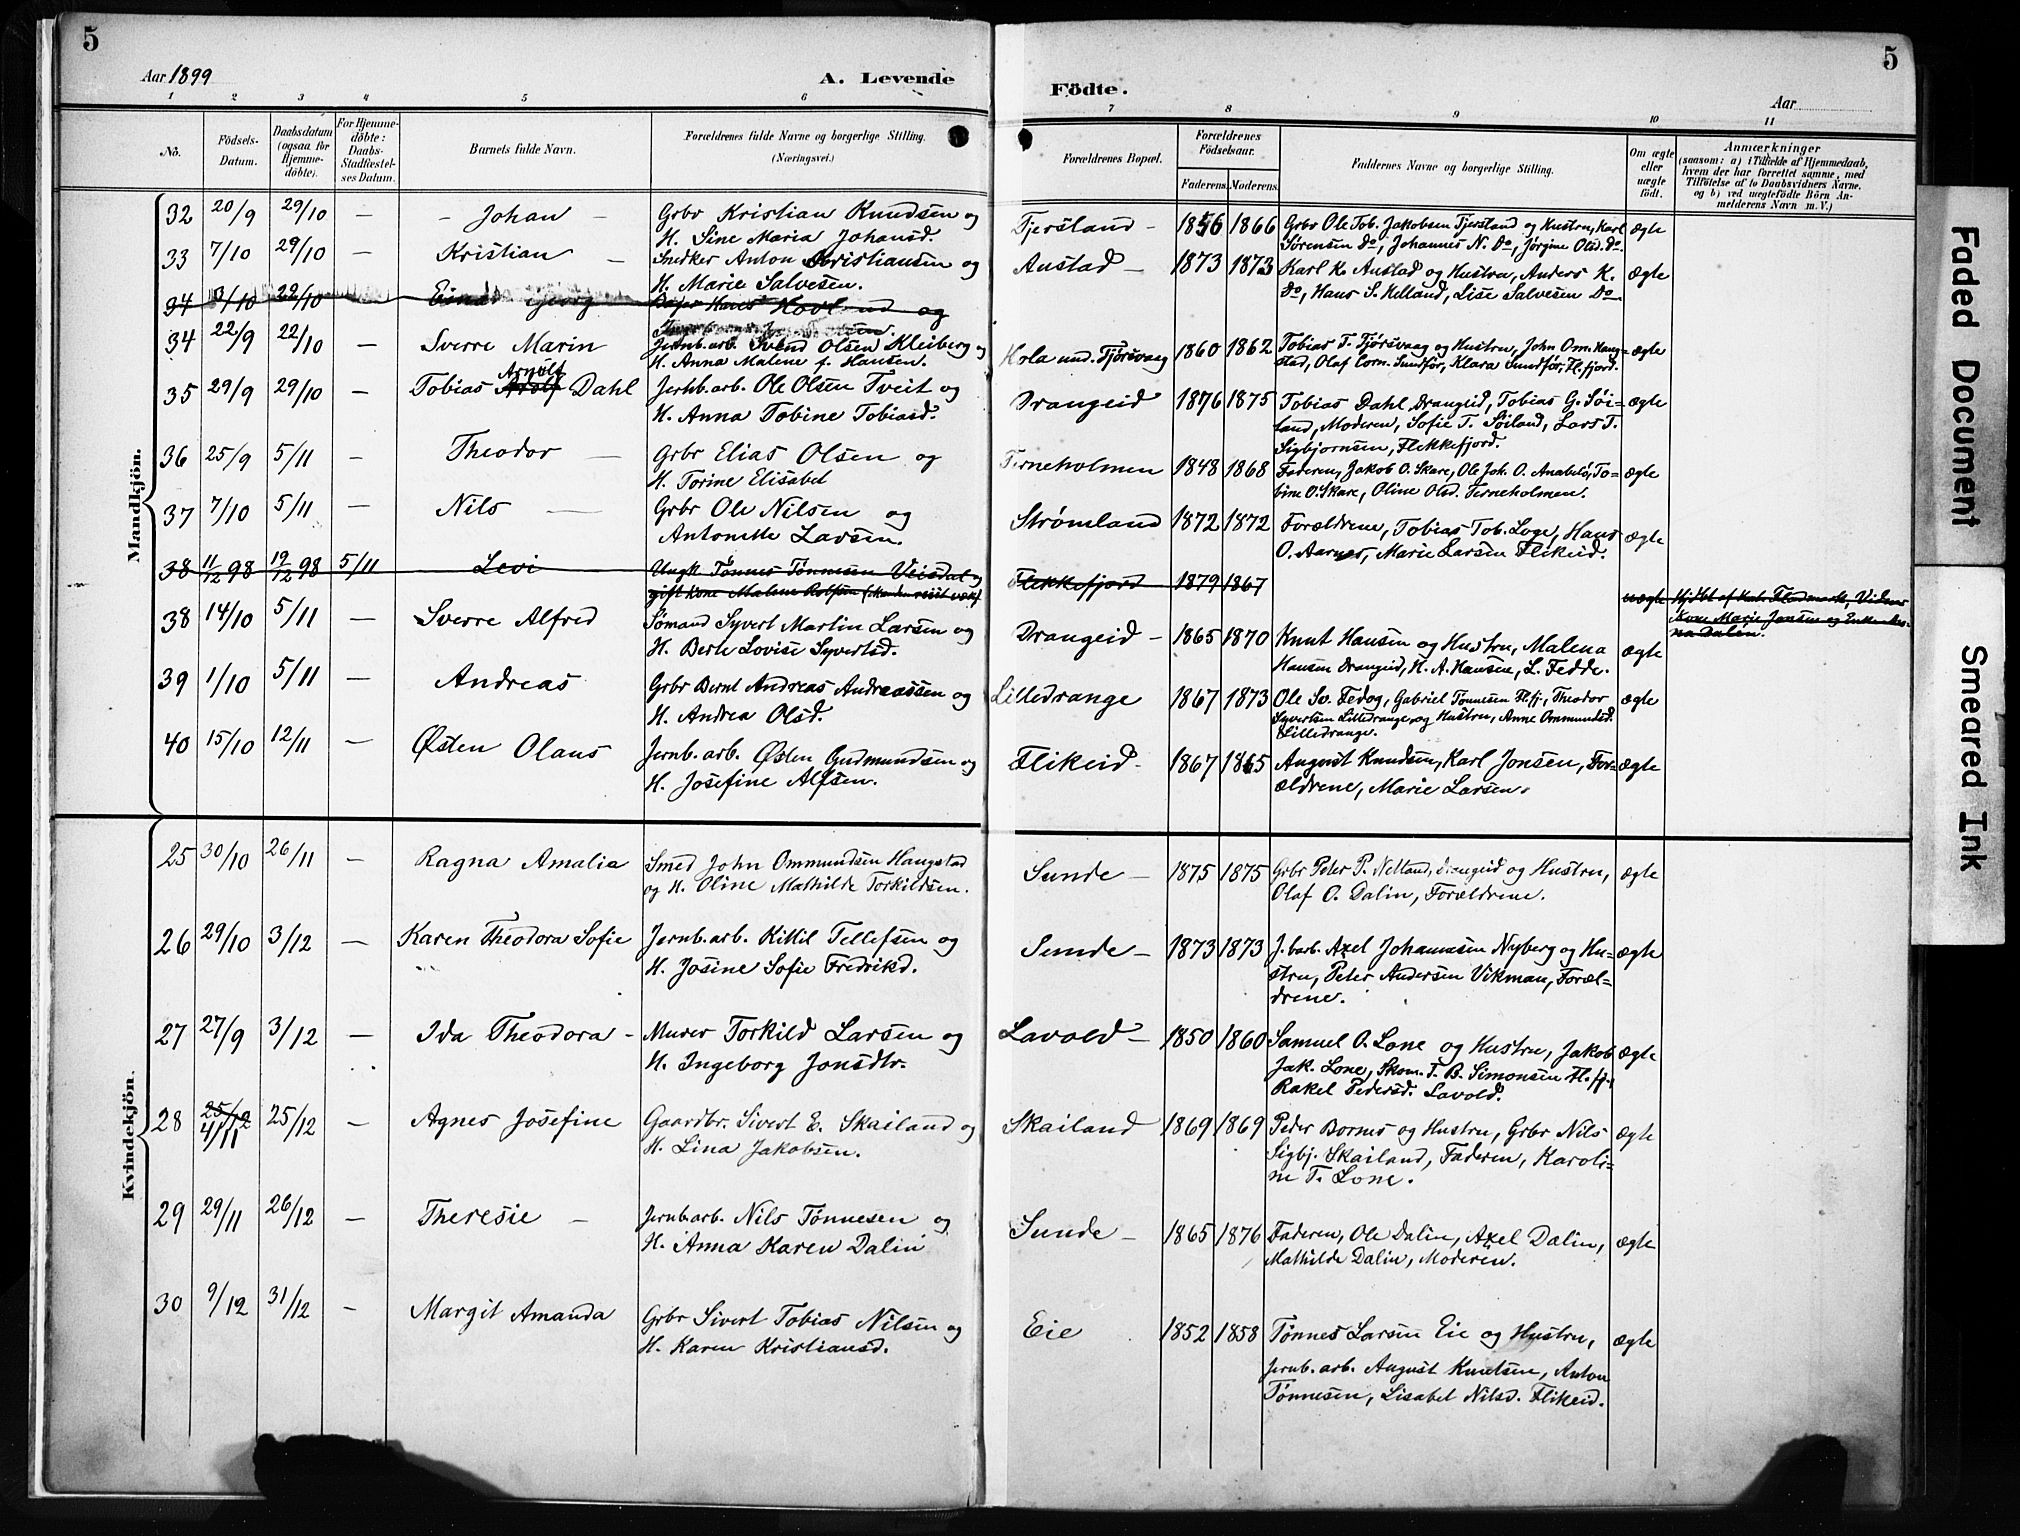 5
5
Aar 1899
A. Levende
Födte.
Aar
1 2 3 4 5 6 7 8 9 10 11
No. Födsels-Datum. Daabsdatum (ogsaa for Hjemme-döbte). For Hjemme-döbte: Daabs-Stadfæstel-ses Datum. Barnets fulde Navn. Forældrenes fulde Navne og borgerlige Stilling. (Næringsvei.) Forældrenes Bopæl. Forældrenes Födselsaar. Faderens. Moderens. Faddernes Navne og borgerlige Stilling. Om ægte eller uægte födt. Anmærkninger
(saasom: a) i Tilfælde af Hjemmedaab,
hvem der har forrettet samme, med
Tilföielse af to Daabsvidners Navne,
og b) ved uægtefödte Börn An-
melderens Navn m. V.)
Mandkjön.
32 20/9 29/10 — - Johan - Grbr Kristian Knudsen og Tjersland - 1856 1866 Grbr Ole Tob. Jakobsen Tjersland og Hustru, Karl ægte
H. Sine Maria Johansd. Sørensen Do, Johannes N. Do, Jørgine Olsd. Do.
33 7/10 29/10 — Kristian — Snedker Anton Kristiansen og Austad - 1873 1873 Karl K. Austad og Hustru, Anders K. ægte
H. Marie Salvesen. Do, Hans S. Kelland, Lise Salvesen Do.
34 3/10 22/10 — Georg og
34 22/9 22/10 — Sverre Marin Jernb. arb. Svend Olsen Kleiberg og Hola und. Tjørsvaag 1860 1862 Tobias T. Tjørsvaag og Hustru, John Om. Haug- ægte
H. Anna Malene f. Hansen. stad, Olaf Corn. Sundfør, Klara Sundfør, Fl.fjord.
35 29/9 29/10 — Tobias Arnolf Dahl Jernb. arb. Ole Olsen Tveit og Drangeid 1876 1875 Tobias Dahl Drangeid, Tobias G. Søi- ægte
H. Anna Tobine Tobiasd. land, Moderen, Sofie T. Søiland, Lars T.
Sigbjørnsen, Flekkefjord.
36 25/9 5/11 — Theodor — Grbr Elias Olsen og Terneholmen 1848 1868 Faderen, Jakob O. Skare, Ole Joh. O. Anabelø, To- ægte
H. Torine Elisabet bine O. Skare, Oline Olsd. Terneholmen.
37 7/10 5/11 — Nils — Grbr Ole Nilsen og Strømland 1872 1872 Forældrene, Tobias Tob. Loge, Hans ægte
Antonette Larsen. O. Aarnes, Marie Larsen Flikeid.
38 11/12 98 19/12 98 5/11 Levi Ungk Tønnes Tønnesen Veisdal og Flekkefjord 1879 1867 uægte Hjdbt af Kat. Flodmark, Vidner
gift Kone Malene Rolfsen (Manden reist væk) Kone Marie Jonsen og Enke An-
na Dalin.
38 14/10 5/11 — Sverre Alfred Sømand Syvert Martin Larsen og Drangeid - 1865 1870 Knut Hansen og Hustru, Malena ægte
H. Berte Lovise Syvertsd. Hansen Drangeid, H. A. Hansen, L. Fedde.
39 1/10 5/11 — Andreas Grbr Bernt Andreas Andreassen og Lilledrange 1867 1873 Ole Sv. Fedog, Gabriel Tønnesen Fl.fj, Theodor ægte
H. Andrea Olsd. Syvertsen Lilledrange, og Hustru, Anne Ommundsd.
Lilledrange.
40 15/10 12/11 — Østen Olaus Jernb. arb. Østen Gudmundsen og Flikeid - 1867 1865 August Knudsen, Karl Jonsen, For- ægte
H. Josefine Alfsen. ældrene, Marie Larsen.
Kvindekjön.
25 30/10 26/11 — Ragna Amalia Smed John Ommundsen Haugstad Sunde - 1875 1875 Grbr Peter P. Netland, Drangeid og Hustru, ægte
og H. Oline Mathilde Torkildsen. Olaf O. Dalin, Forældrene.
26 29/10 3/12 — Karen Theodora Sofie Jernb. arb. Kittil Tellefsen og Sunde - 1873 1873 J. barb. Axel Johannesen Nyberg og Hu- ægte
H. Josine Sofie Fredrikd. stru, Peter Andersen Vikman, Foræl-
drene.
27 27/9 3/12 — Ida Theodora - Murer Torkild Larsen og Lavold - 1850 1860 Samuel O. Lone og Hustru, Jakob ægte
H. Ingeborg Jonsdtr. Jak. Lone, Skom. T. B. Simonsen Fl.fj,
Rakel Pedersd. Lavold.
28 25/12 4/11 25/12 — Agnes Josefine Gaardbr. Sivert E. Skailand og Skailand 1869 1869 Peder Bornes og Hustru, Grbr Nils ægte
H. Lina Jakobsen. Sigbj. Skailand, Faderen, Karoli-
ne T. Lone.
29 29/11 26/12 — Theresie - Jernb. arb. Nils Tønnesen og Sunde - 1865 1876 Faderen, Ole Dalin, Axel Dalin, ægte
H. Anna Karen Dalin Mathilde Dalin, Moderen.
30 9/12 31/12 - Margit Amanda Grbr Sivert Tobias Nilsen og Eie 1852 1858 Tønnes Larsen Eie og Hustru, ægte
H. Karen Kristiansd. Jernb. arb. August Knutsen, Anton
Tønnesen, Lisabet Nilsd. Flikeid.
Faded Document
Smeared Ink